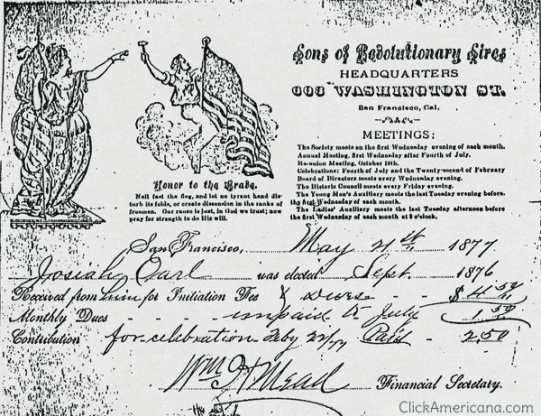 Sons of Revolutionary Sires
HEADQUARTERS
603 WASHINGTON ST.
San Francisco, Cal.
MEETINGS:
The Society meets on the first Wednesday evening of each month.
Annual Meeting, first Wednesday after Fourth of July.
Re-union Meeting, October 19th.
Celebrations: Fourth of July and the Twenty-second of February
Board of Directors meets every Wednesday evening.
The Historic Council meets every Friday evening.
The Young Men's Auxiliary meets the last Tuesday evening before
the first Wednesday of each month.
The Ladies' Auxiliary meets the last Tuesday afternoon before
the first Wednesday of each month at 2 o'clock.
Honor to the Brave.
Nail fast the flag, and let no tyrant hand dis-
turb its folds, or create dissension in the ranks of
freemen. Our cause is just, in God we trust; now
pray for strength to do His will.
San Francisco, May 21st 1877
Josiah Earl was elected Sept. 1876
Received from him for Initiation Fee & dues $4.50
Monthly Dues unpaid to July 1.50
Contribution for celebration Feby 22/77 Paid 2.50
Wm H Mead Financial Secretary.
ClickAmericana.com